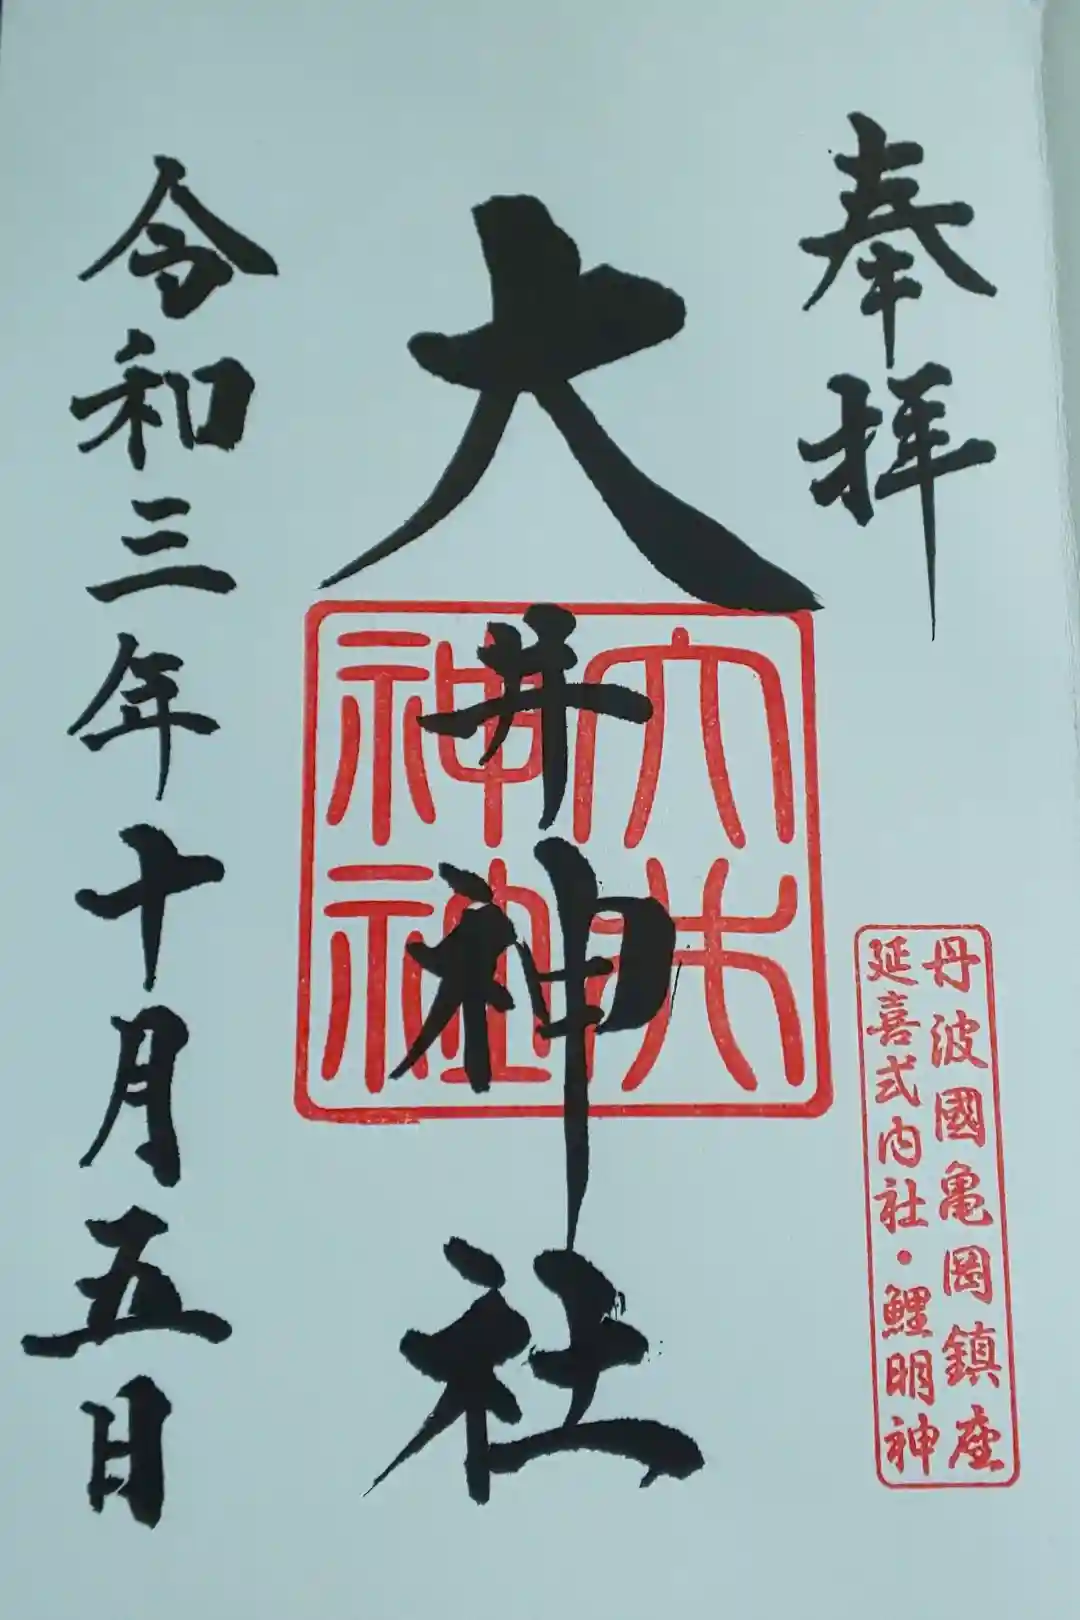 奉拝
丹波國亀岡鎮座
延喜式内社・鯉明神
大井神社
大井
神社
令和三年十月五日